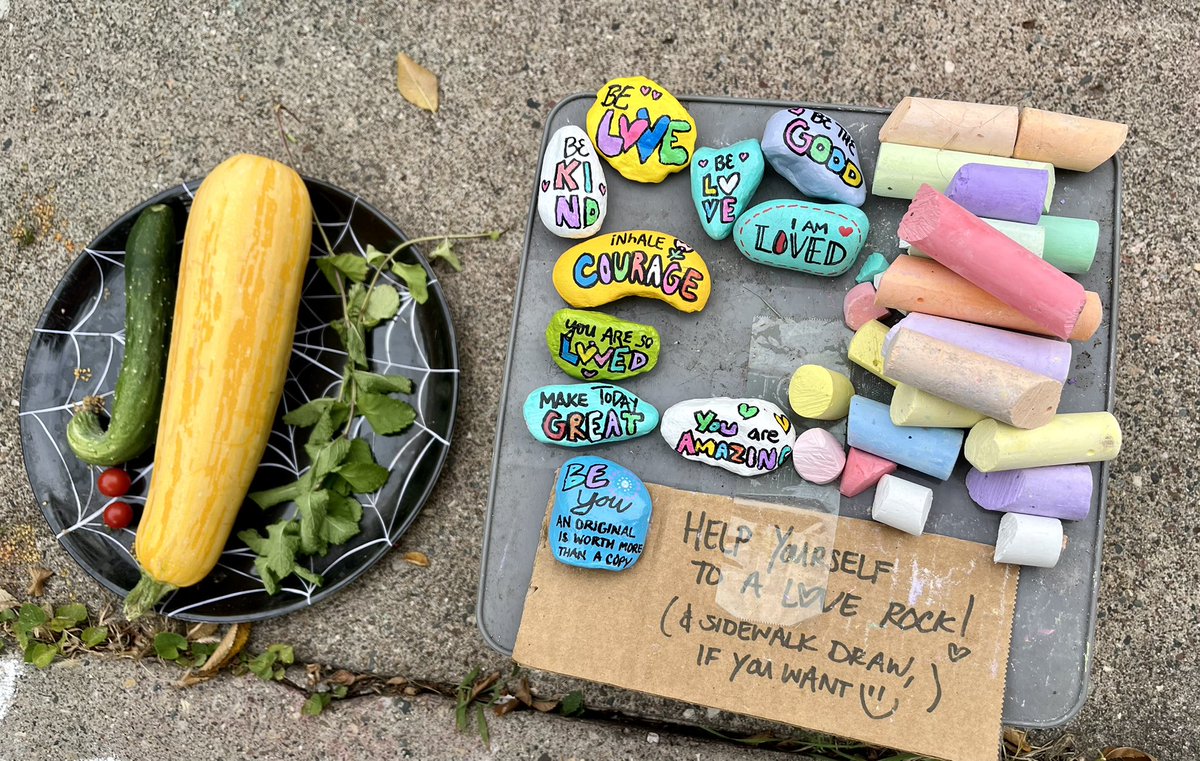 BE
LOVE
BE
KI
ND
BE
LO
VE
BE THE
GOOD
I AM
LOVED
INHALE
COURAGE
YOU ARE SO
LOVED
MAKE TODAY
GREAT
You are
AMAZING
BE
You
AN ORIGINAL
IS WORTH MORE
THAN A COPY
HELP YOURSELF
TO A LOVE ROCK!
(& SIDEWALK DRAW,
IF YOU WANT)